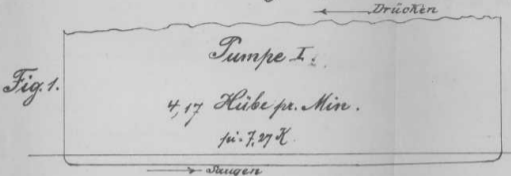 Drücken
Pumpe I.
Fig. 1.
4,17 Hübe pr. Min.
pi = 7,27 K.
Saugen